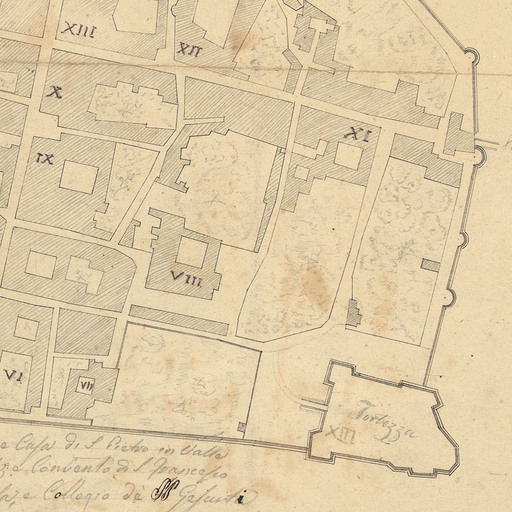 XIII
XII
X
XI
IX
VIII
VI
VII
Fortezza
XIII
e Casa di S. Pietro in Valle
e Convento di S. Francesco
e Collegio de SS Gesuiti